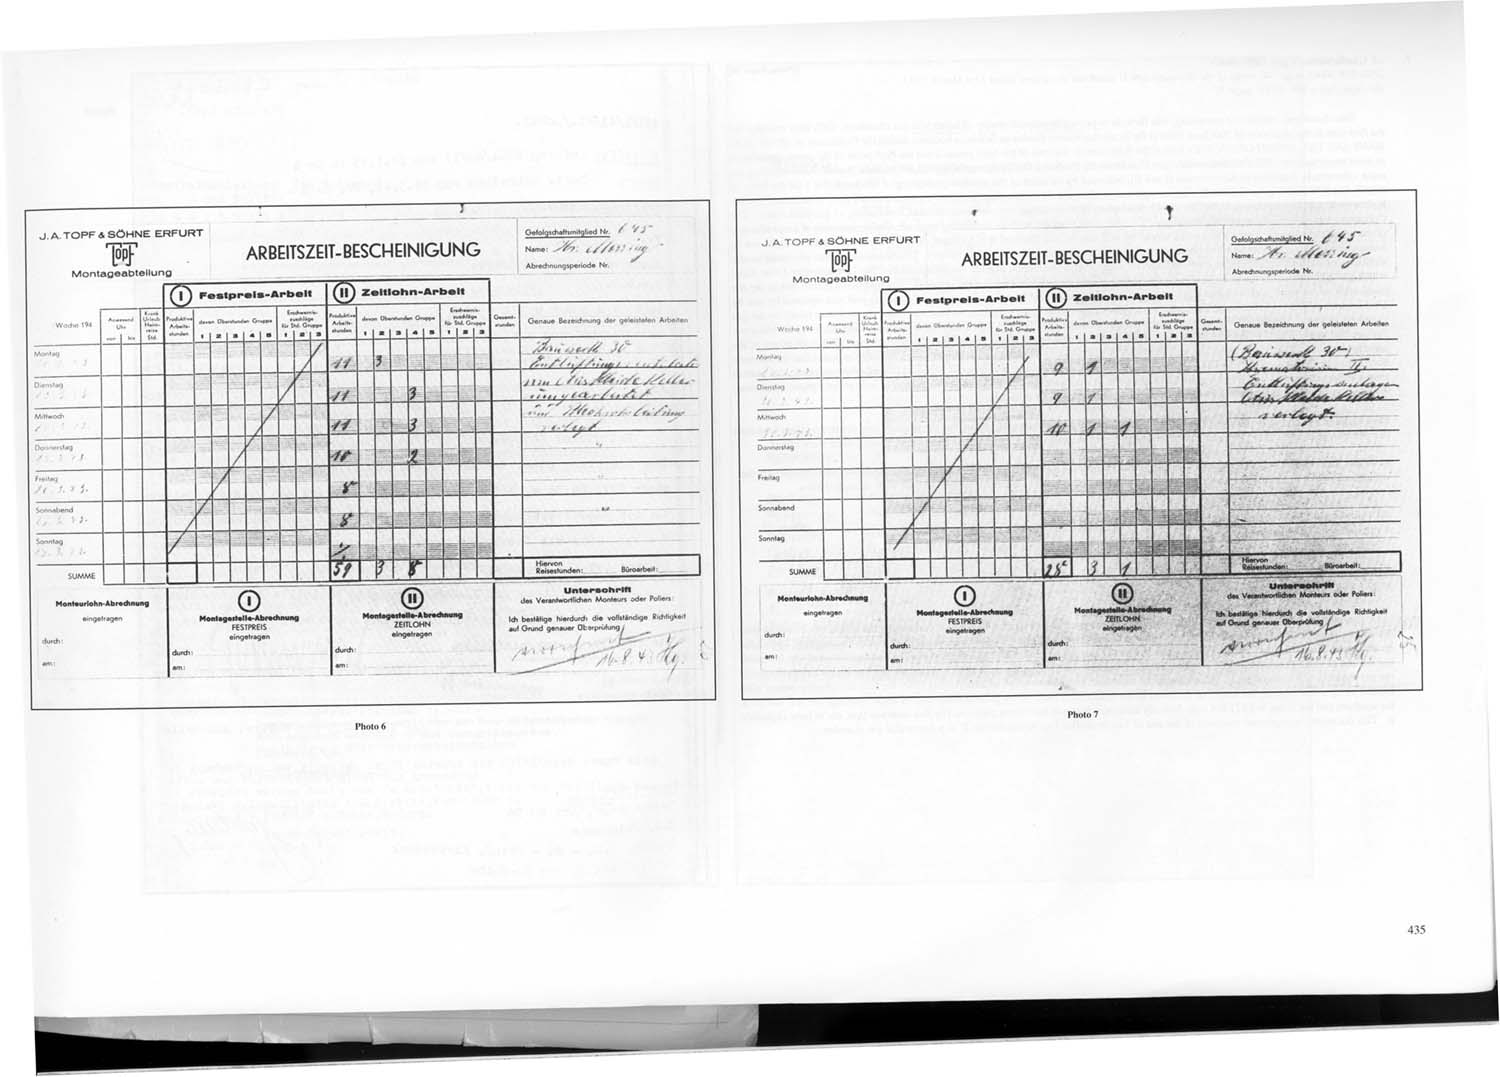 J. A. TOPF & SÖHNE ERFURT
TOPF
Montageabteilung
ARBEITSZEIT-BESCHEINIGUNG
Gefolgschaftsmitglied Nr. 645
Name: Hr. Messing
Abrechnungsperiode Nr.
I Festpreis-Arbeit
II Zeitlohn-Arbeit
Woche 194
Anwesend Uhr
von bis
Krank Urlaub Heimreise Std.
Produktive Arbeitsstunden
davon Überstunden Gruppe
1 2 3 4 5
Erschwerniszuschläge für Std. Gruppe
1 2 3
Produktive Arbeitsstunden
davon Überstunden Gruppe
1 2 3 4 5
Erschwerniszuschläge für Std. Gruppe
1 2 3
Gesamtstunden
Genaue Bezeichnung der geleisteten Arbeiten
Montag
11 3
Bauwerk 30
Dienstag
11 3
Mittwoch
11 3
verlegt
Donnerstag
10 2
"
Freitag
8
"
Sonnabend
8
"
Sonntag
SUMME
59 3 8
Hiervon
Reisestunden: Büroarbeit:
Monteurlohn-Abrechnung
eingetragen
durch:
am:
I
Montagestelle-Abrechnung
FESTPREIS
eingetragen
durch:
am:
II
Montagestelle-Abrechnung
ZEITLOHN
eingetragen
durch:
am:
Unterschrift
des Verantwortlichen Monteurs oder Poliers:
Ich bestätige hierdurch die vollständige Richtigkeit
auf Grund genauer Überprüfung
16.8.43
Photo 6
J. A. TOPF & SÖHNE ERFURT
TOPF
Montageabteilung
ARBEITSZEIT-BESCHEINIGUNG
Gefolgschaftsmitglied Nr. 645
Name: Hr. Messing
Abrechnungsperiode Nr.
I Festpreis-Arbeit
II Zeitlohn-Arbeit
Woche 194
Anwesend Uhr
von bis
Krank Urlaub Heimreise Std.
Produktive Arbeitsstunden
davon Überstunden Gruppe
1 2 3 4 5
Erschwerniszuschläge für Std. Gruppe
1 2 3
Produktive Arbeitsstunden
davon Überstunden Gruppe
1 2 3 4 5
Erschwerniszuschläge für Std. Gruppe
1 2 3
Gesamtstunden
Genaue Bezeichnung der geleisteten Arbeiten
Montag
9 1
(Bauwerk 30)
Krematorium II.
Dienstag
9 1
Entlüftungsanlagen
Mittwoch
10 1 1
verlegt.
Donnerstag
Freitag
Sonnabend
Sonntag
SUMME
28 3 1
Hiervon
Reisestunden: Büroarbeit:
Monteurlohn-Abrechnung
eingetragen
durch:
am:
I
Montagestelle-Abrechnung
FESTPREIS
eingetragen
durch:
am:
II
Montagestelle-Abrechnung
ZEITLOHN
eingetragen
durch:
am:
Unterschrift
des Verantwortlichen Monteurs oder Poliers:
Ich bestätige hierdurch die vollständige Richtigkeit
auf Grund genauer Überprüfung
16.8.43
Photo 7
435